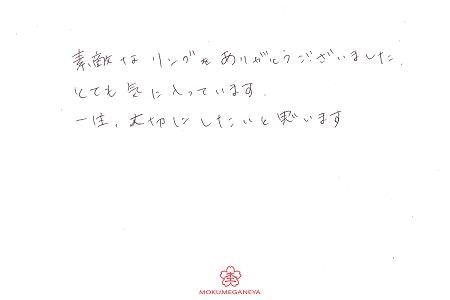 素敵なリングをありがとうございました.
とても気に入っています.
一生、大切にしたいと思います
MOKUMEGANEYA